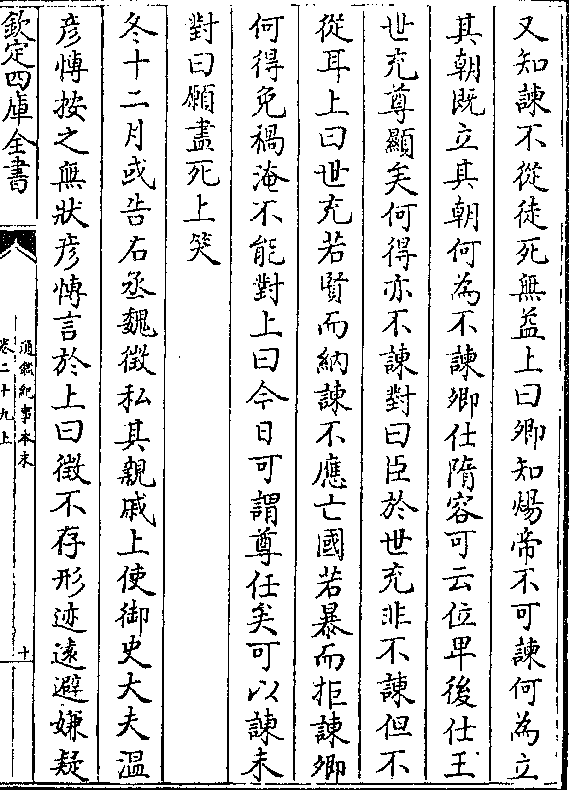 又知諫不從徒死無益上曰卿知煬帝不可諫何為立
其朝既立其朝何為不諫卿仕隋容可云位卑後仕王
世充尊顯矣何得亦不諫對曰臣於世充非不諫但不
從耳上曰世充若賢而納諫不應亡國若暴而拒諫卿
何得免禍淹不能對上曰今日可謂尊任矣可以諫未
對曰願盡死上笑
冬十二月或告右丞魏徵私其親戚上使御史大夫溫
彥愽按之無狀彥愽言於上曰徵不存形迹遠避嫌疑
欽定四庫全書
通鑑紀事本末
卷二十九上
十